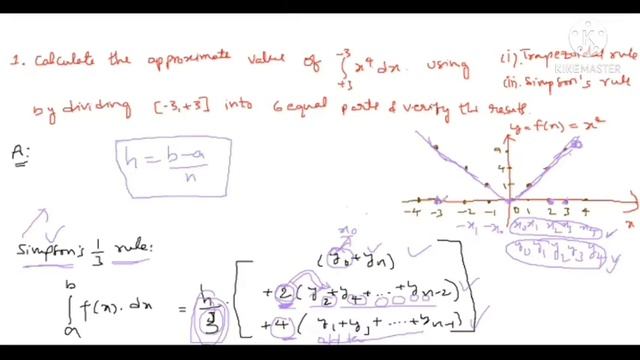 1. Calculate the approximate value of ∫₊₃⁻³ x⁴ dx using (i). Trapezoidal rule
(ii). Simpson's rule
by dividing [-3,+3] into 6 equal parts & verify the results.
KINEMASTER
y=f(n)=x²
A:
h = b-a / n
9
4
1
-4 -3 -2 -1 0 1 2 3 4 x
-x₁ -x₀ x₀ x₁ x₂ x₃
y₀ y₁ y₂ y₃ y₄
Simpson's 1/3 rule:
x₀
∫ₐᵇ f(x).dx = h/3 [ (y₀+yn)
+2 (y₂+y₄+...+yn-2)
+4 (y₁+y₃+....+yn-1) ]